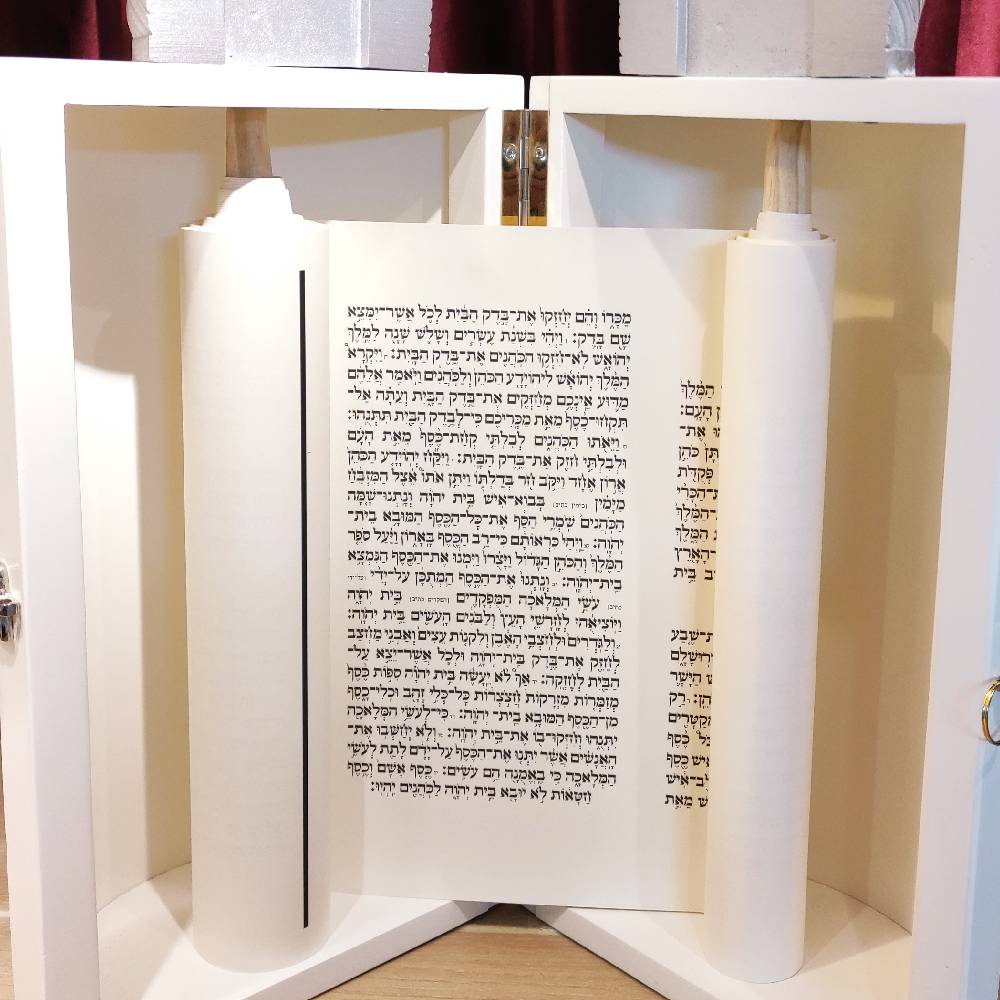 הַמֶּ֗לֶךְ
הָעָֽם:
אֶת־
כֹּהֵ֣ן
פְּקֻדֹּ֖ת
הַמֶּ֙לֶךְ֙
הַמֶּ֔לֶךְ
־הָאָ֙רֶץ֙
בֵּ֥ית
־שֶׁ֣בַע
הַיָּשָׁ֛ר
רַ֥ק
כֶּ֣סֶף
כֶּ֗סֶף
־אִ֔ישׁ
מֵאֵ֖ת
מַכָּר֑וֹ וְהֵ֗ם יְחַזְּקוּ֙ אֶת־בֶּ֣דֶק הַבַּ֔יִת לְכֹ֛ל אֲשֶׁר־יִמָּצֵ֥א
שָׁ֖ם בָּֽדֶק: וַיְהִ֗י בִּשְׁנַ֨ת עֶשְׂרִ֧ים וְשָׁלֹ֛שׁ שָׁנָ֖ה לַמֶּ֣לֶךְ
יְהוֹאָ֑שׁ לֹֽא־חִזְּק֥וּ הַכֹּהֲנִ֖ים אֶת־בֶּ֥דֶק הַבָּֽיִת: וַיִּקְרָא֩
הַמֶּ֨לֶךְ יְהוֹאָ֜שׁ לִיהוֹיָדָ֤ע הַכֹּהֵן֙ וְלַכֹּ֣הֲנִ֔ים וַיֹּ֣אמֶר אֲלֵהֶ֔ם
מַדּ֛וּעַ אֵינְכֶ֥ם מְחַזְּקִ֖ים אֶת־בֶּ֣דֶק הַבָּ֑יִת וְעַתָּ֗ה אַל־
תִּקְחוּ־כֶ֙סֶף֙ מֵאֵ֣ת מַכָּרֵיכֶ֔ם כִּֽי־לְבֶ֥דֶק הַבַּ֖יִת תִּתְּנֻֽהוּ:
וַיֵּאֹ֖תוּ הַכֹּֽהֲנִ֑ים לְבִלְתִּ֤י קְחַת־כֶּ֙סֶף֙ מֵאֵ֣ת הָעָ֔ם
וּלְבִלְתִּ֥י חַזֵּ֖ק אֶת־בֶּ֥דֶק הַבָּֽיִת: וַיִּקַּ֞ח יְהוֹיָדָ֤ע הַכֹּהֵן֙
אֲר֣וֹן אֶחָ֔ד וַיִּקֹּ֥ב חֹ֖ר בְּדַלְתּ֑וֹ וַיִּתֵּ֣ן אֹתוֹ֩ אֵ֨צֶל הַמִּזְבֵּ֜חַ
מִיָּמִ֗ין (בימין כתיב) בְּבוֹא־אִישׁ֙ בֵּ֣ית יְהוָ֔ה וְנָתְנוּ־שָׁ֤מָּה
הַכֹּֽהֲנִים֙ שֹׁמְרֵ֣י הַסַּ֔ף אֶת־כָּל־הַכֶּ֖סֶף הַמּוּבָ֥א בֵית־
יְהוָֽה: וַֽיְהִי֙ כִּרְאוֹתָ֔ם כִּי־רַ֥ב הַכֶּ֖סֶף בָּֽאָר֑וֹן וַיַּ֨עַל סֹפֵ֤ר
הַמֶּ֙לֶךְ֙ וְהַכֹּהֵ֣ן הַגָּד֔וֹל וַיָּצֻ֙רוּ֙ וַיִּמְנ֔וּ אֶת־הַכֶּ֖סֶף הַנִּמְצָ֥א
בֵית־יְהוָֽה: וְנָֽתְנוּ֙ אֶת־הַכֶּ֣סֶף הַֽמְתֻכָּ֔ן עַל־יְדֵי֙ (על־יד
כתיב) עֹשֵׂ֣י הַמְּלָאכָ֔ה הַמֻּפְקָדִ֖ים (הפקדים כתיב) בֵּ֣ית יְהוָ֑ה
וַיּוֹצִיאֻ֜הוּ לְחָרָשֵׁ֤י הָעֵץ֙ וְלַבֹּנִ֔ים הָעֹשִׂ֖ים בֵּ֥ית יְהוָֽה:
וְלַגֹּֽדְרִים֙ וּלְחֹצְבֵ֣י הָאֶ֔בֶן וְלִקְנ֤וֹת עֵצִים֙ וְאַבְנֵ֣י מַחְצֵ֔ב
לְחַזֵּ֖ק אֶת־בֶּ֣דֶק בֵּית־יְהוָ֑ה וּלְכֹ֛ל אֲשֶׁר־יֵצֵ֥א עַל־
הַבַּ֖יִת לְחָזְקָֽה: אַךְ֩ לֹ֨א יֵעָשֶׂ֜ה בֵּ֣ית יְהוָ֗ה סִפּ֥וֹת כֶּ֙סֶף֙
מְזַמְּר֤וֹת מִזְרָקוֹת֙ חֲצֹ֣צְר֔וֹת כָּל־כְּלִ֥י זָהָ֖ב וּכְלִי־כָ֑סֶף
מִן־הַכֶּ֖סֶף הַמּוּבָ֥א בֵית־יְהוָֽה: כִּֽי־לְעֹשֵׂ֥י הַמְּלָאכָ֖ה
יִתְּנֻ֑הוּ וְחִזְּקוּ־ב֖וֹ אֶת־בֵּ֥ית יְהוָֽה: וְלֹ֧א יְחַשְּׁב֣וּ אֶת־
הָאֲנָשִׁ֗ים אֲשֶׁ֨ר יִתְּנ֤וּ אֶת־הַכֶּ֙סֶף֙ עַל־יָדָ֔ם לָתֵ֖ת לְעֹשֵׂ֣י
הַמְּלָאכָ֑ה כִּ֥י בֶאֱמֻנָ֖ה הֵ֥ם עֹשִֽׂים: כֶּ֤סֶף אָשָׁם֙ וְכֶ֣סֶף
חַטָּא֔וֹת לֹ֥א יוּבָ֖א בֵּ֣ית יְהוָ֑ה לַכֹּהֲנִ֖ים יִֽהְיֽוּ: